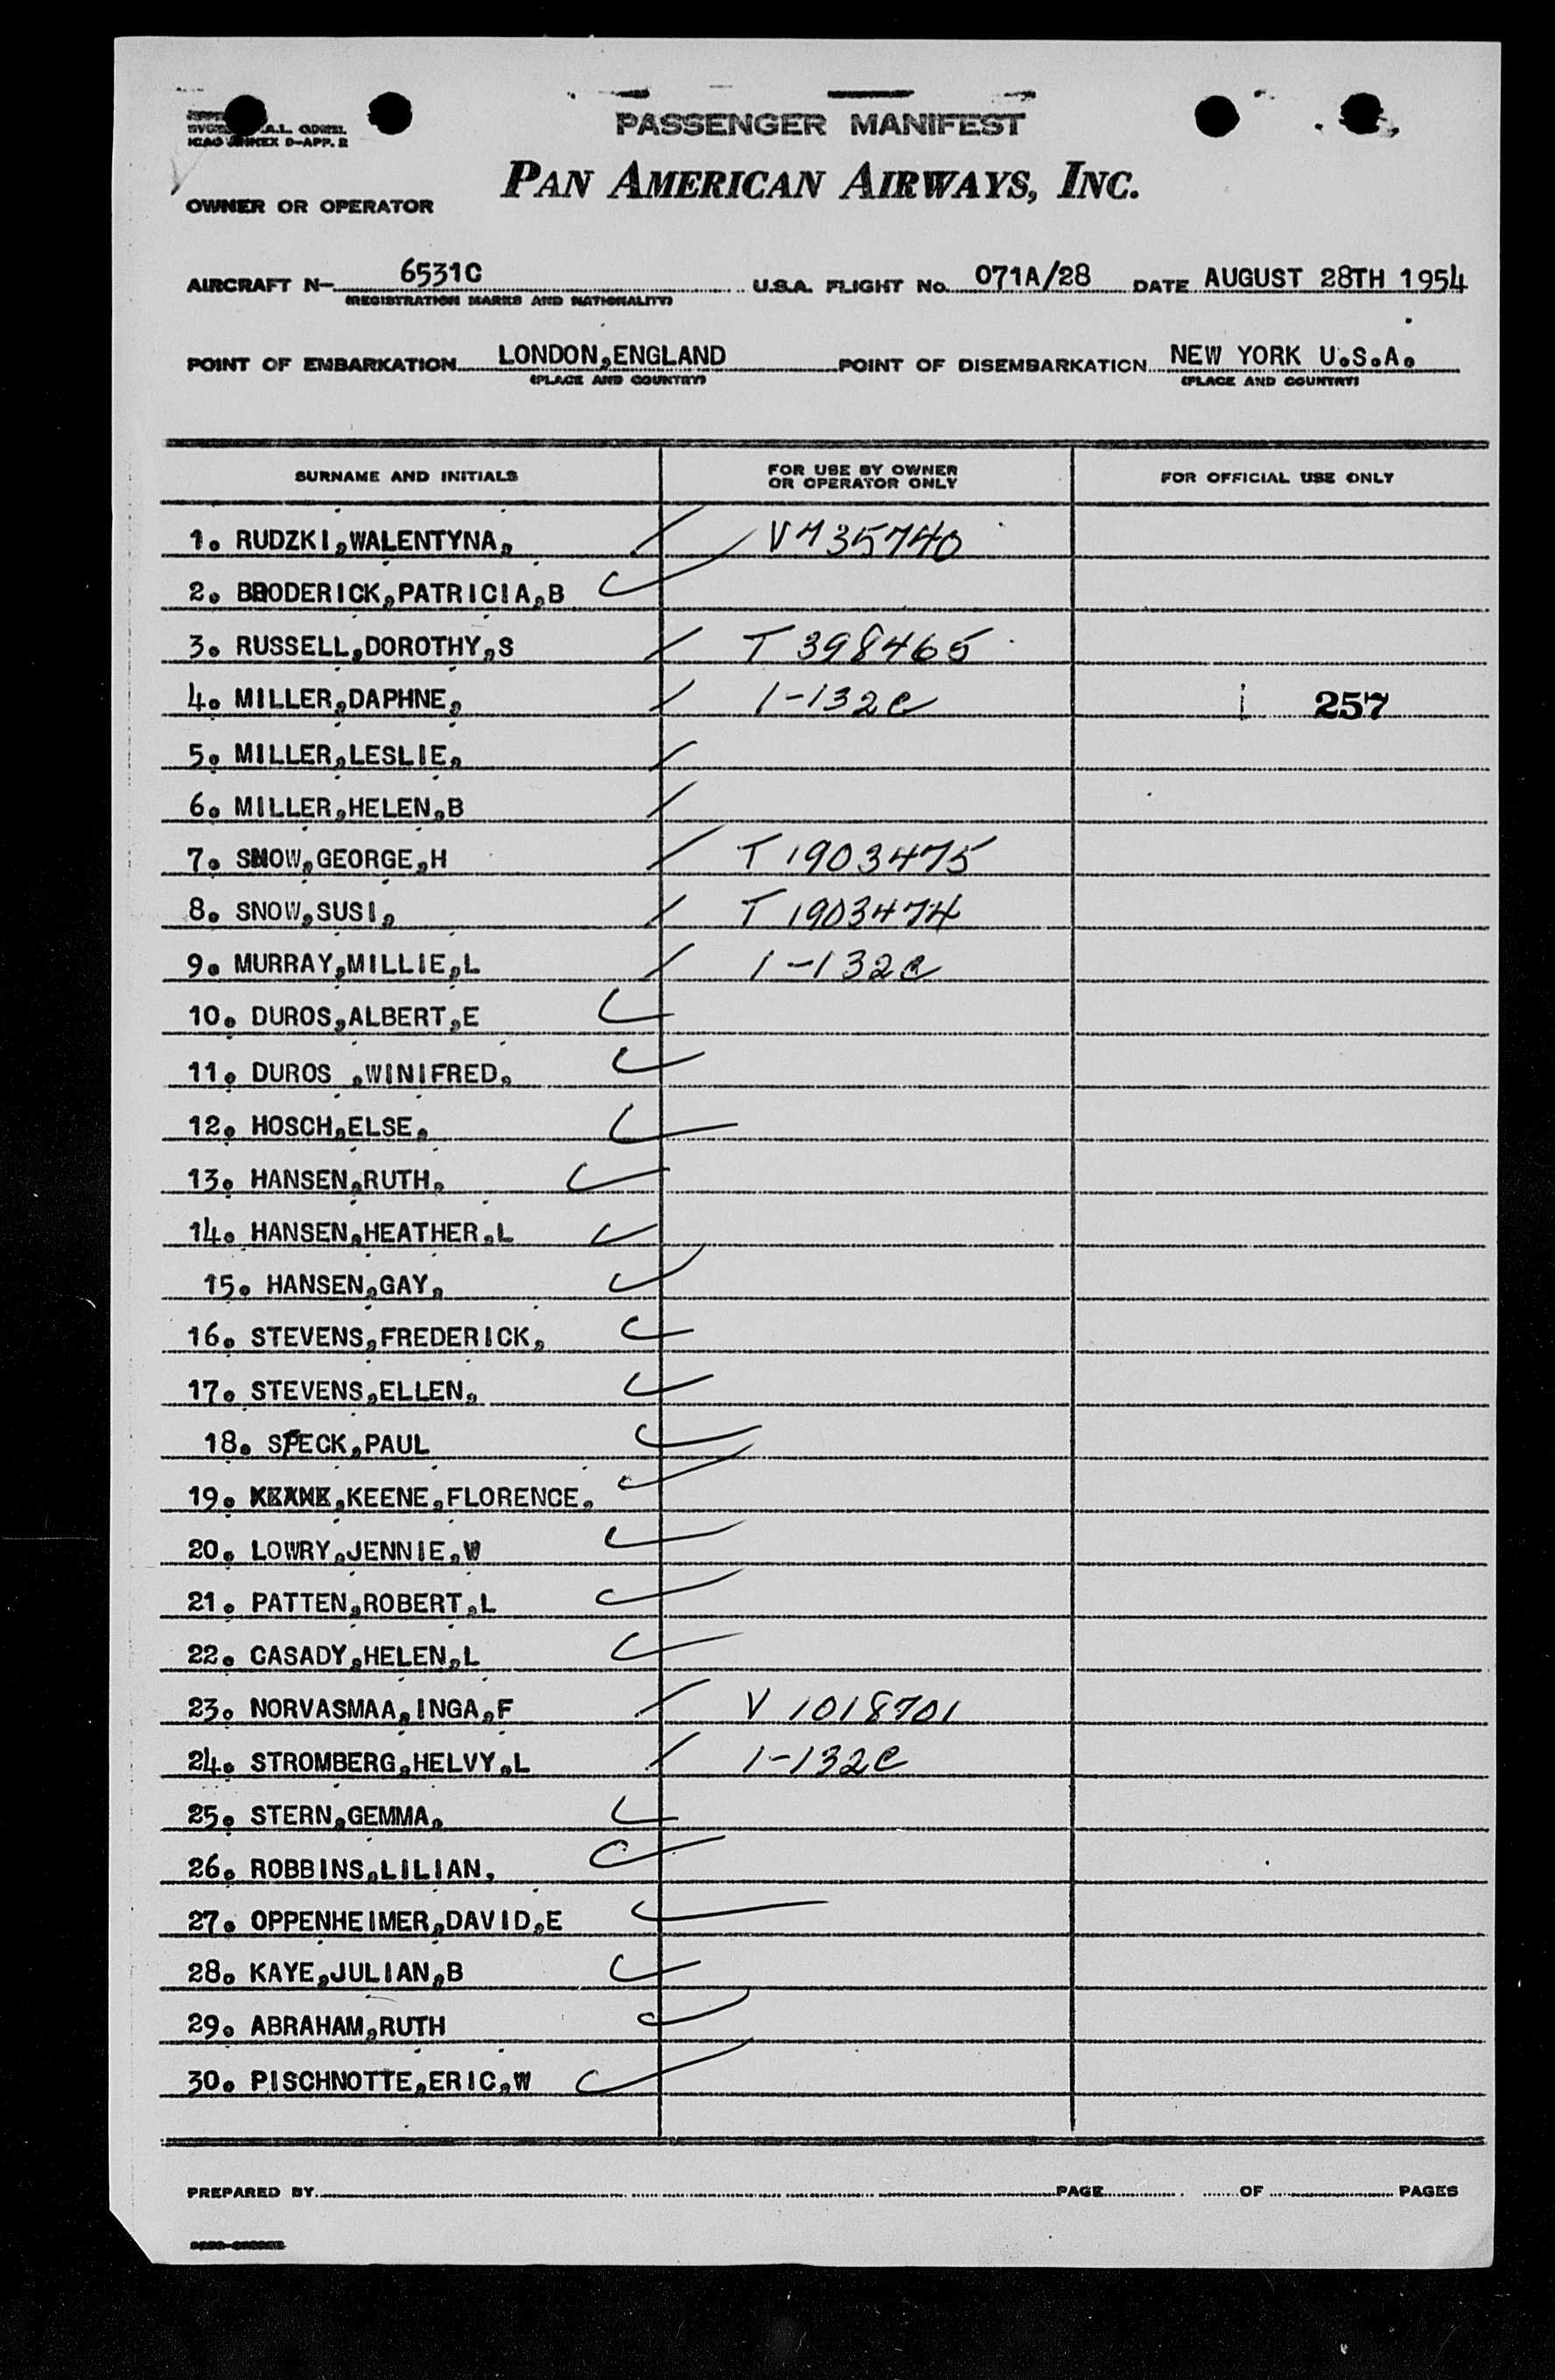 A.L. 
ICAO ANNEX D-APP. 2
PASSENGER MANIFEST
PAN AMERICAN AIRWAYS, INC.
OWNER OR OPERATOR
AIRCRAFT N- 6531C U.S.A. FLIGHT No. 071A/28 DATE AUGUST 28TH 1954
(REGISTRATION MARKS AND NATIONALITY)
POINT OF EMBARKATION LONDON,ENGLAND POINT OF DISEMBARKATION NEW YORK U.S.A.
(PLACE AND COUNTRY) (PLACE AND COUNTRY)
SURNAME AND INITIALS FOR USE BY OWNER OR OPERATOR ONLY FOR OFFICIAL USE ONLY
1. RUDZKI,WALENTYNA, V735740
2. BRODERICK,PATRICIA,B
3. RUSSELL,DOROTHY,S T398465
4. MILLER,DAPHNE, 1-132c 257
5. MILLER,LESLIE,
6. MILLER,HELEN,B
7. SNOW,GEORGE,H T1903475
8. SNOW,SUSI, T1903474
9. MURRAY,MILLIE,L 1-132c
10. DUROS,ALBERT,E
11. DUROS ,WINIFRED,
12. HOSCH,ELSE,
13. HANSEN,RUTH,
14. HANSEN,HEATHER,L
15. HANSEN,GAY,
16. STEVENS,FREDERICK,
17. STEVENS,ELLEN,
18. SPECK,PAUL
19. KEENE,FLORENCE,
20. LOWRY,JENNIE,W
21. PATTEN,ROBERT,L
22. CASADY,HELEN,L
23. NORVASMAA,INGA,F V 1018701
24. STROMBERG,HELVY,L 1-132c
25. STERN,GEMMA,
26. ROBBINS,LILIAN,
27. OPPENHEIMER,DAVID,E
28. KAYE,JULIAN,B
29. ABRAHAM,RUTH
30. PISCHNOTTE,ERIC,W
PREPARED BY PAGE OF PAGES